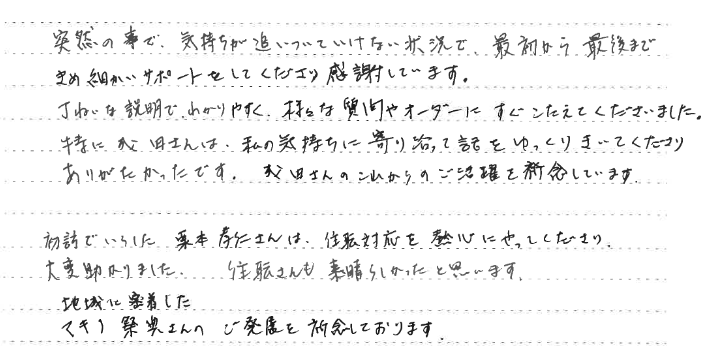 突然の事で、気持ちが追いついていけない状況で、最初から最後まで
きめ細かいサポートをしてくださり感謝しています。
丁ねいな説明でわかりやすく、様々な質問やオーダーにすぐこたえてくださいました。
特に武田さんは、私の気持ちに寄り沿って話をゆっくりきいてくださり
ありがたかったです。武田さんのこれからのご活躍を祈念しています。
初訪でいらした栗本孝仁さんは、住職対応を熱心にやってくださり、
大変助かりました。住職さんも素晴らしかったと思います。
地域に密着した
マキノ祭典さんのご発展を祈念しております。